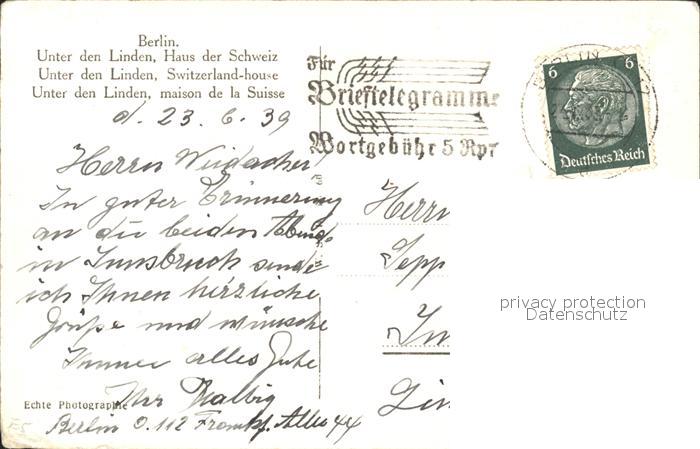 Berlin.
Unter den Linden, Haus der Schweiz
Unter den Linden, Switzerland-house
Unter den Linden, maison de la Suisse
d. 23. 6. 39
Herrn
In guter Erinnerung
an die beiden Abend-
in Innsbruck sende
ich Ihnen herzliche
Grüße und wünsche
Immer alles Gute
Ihr
Echte Photographie
Berlin O.112 Frankf. Allee 44
Für
Brieftelegramme
Wortgebühr 5 Rpf
BERLIN
6 6
Deutsches Reich
Herrn
Sepp
In
privacy protection
Datenschutz